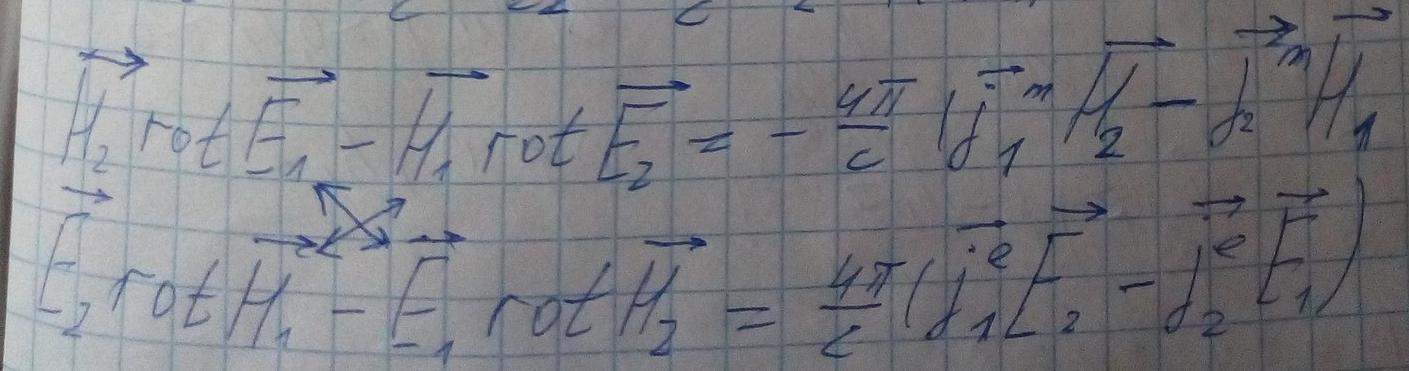 H⃗₂ rot E⃗₁ − H⃗₁ rot E⃗₂ = − 4π/c (j⃗₁ᵐ H⃗₂ − j⃗₂ᵐ H⃗₁
E⃗₂ rot H⃗₁ − E⃗₁ rot H⃗₂ = 4π/c (j⃗₁ᵉ E⃗₂ − j⃗₂ᵉ E⃗₁)